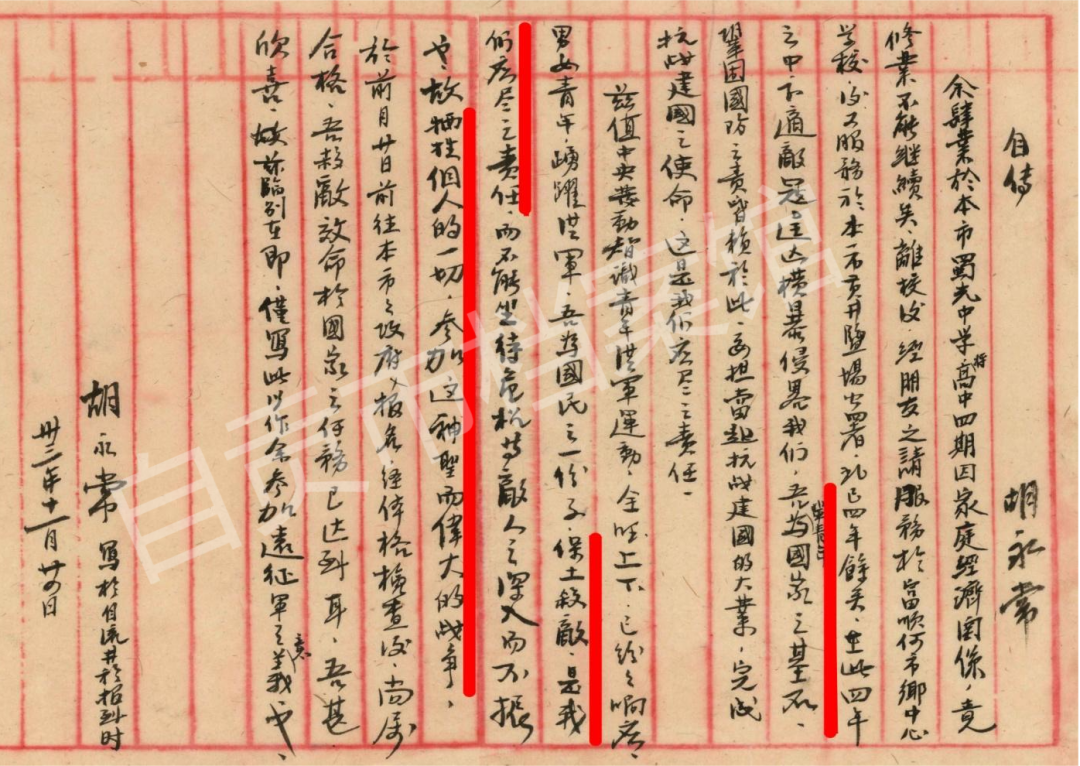 自传
胡永常
余肄业於本市蜀光中学高中四期因家庭經濟関係，竟
修業不能継續矣、離校後，经朋友之請服務於富顺何市鄉中心
学校，後又服務於本市贡井鹽場公署，已四年餘矣，在此四年
之中，不適敵寇逞凶横暴侵畧我们，吾为國家之基石，
鞏固國防之責皆賴於此，要担當起抗战建國的大業，完成
抗战建國之使命，这是我们应尽之責任，
兹值中央發動智識青年從軍運動，全皆上下，已纷々响应，
男女青年，踴躍從軍，吾为國民之一份子，保土殺敵，是我
们应尽之責任，而不能坐待危机等敵人之深入而不振
也，故牺牲個人的一切，参加这神聖而偉大的战争，
於前月廿日前往本市之政府，报名经体格檢查後，尚属
合格，吾殺敵效命於國家之任務已达到耳，吾甚
欣喜，兹臨别在即，僅寫此以作余参加遠征軍之意義也、
胡永常 寫於自流井於报到时
卅三年十一月廿四日
自贡市档案馆